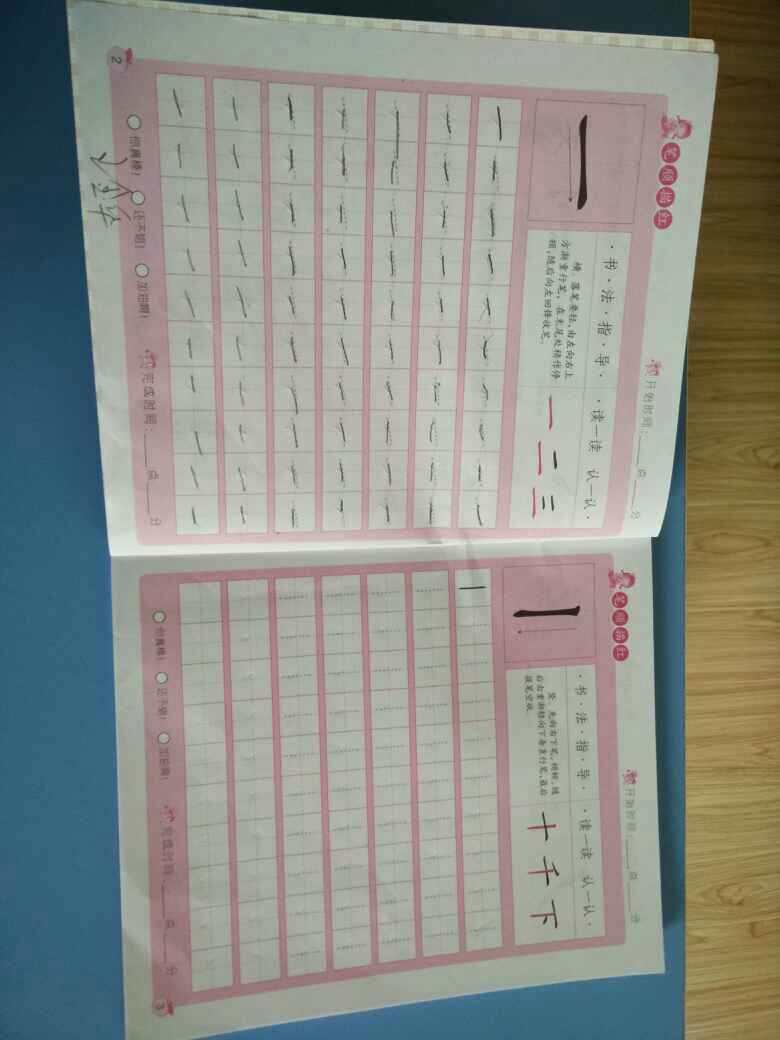 笔顺描红
开始时间:___点___分
一
·书·法·指·导·
·读一读 认一认·
横:落笔要轻,由左向右上
方渐重行笔,在末尾处稍作停
顿,随后向左回锋收笔。
一 二 三
一
你真棒! 还不错! 加油啊! 完成时间:___点___分
2
笔顺描红
开始时间:___点___分
丨
·书·法·指·导·
·读一读 认一认·
竖:先向右下笔,稍顿,随
后由重渐轻向下垂直行笔,最后
提笔空收。
十 千 下
丨
你真棒! 还不错! 加油啊! 完成时间:___点___分
3